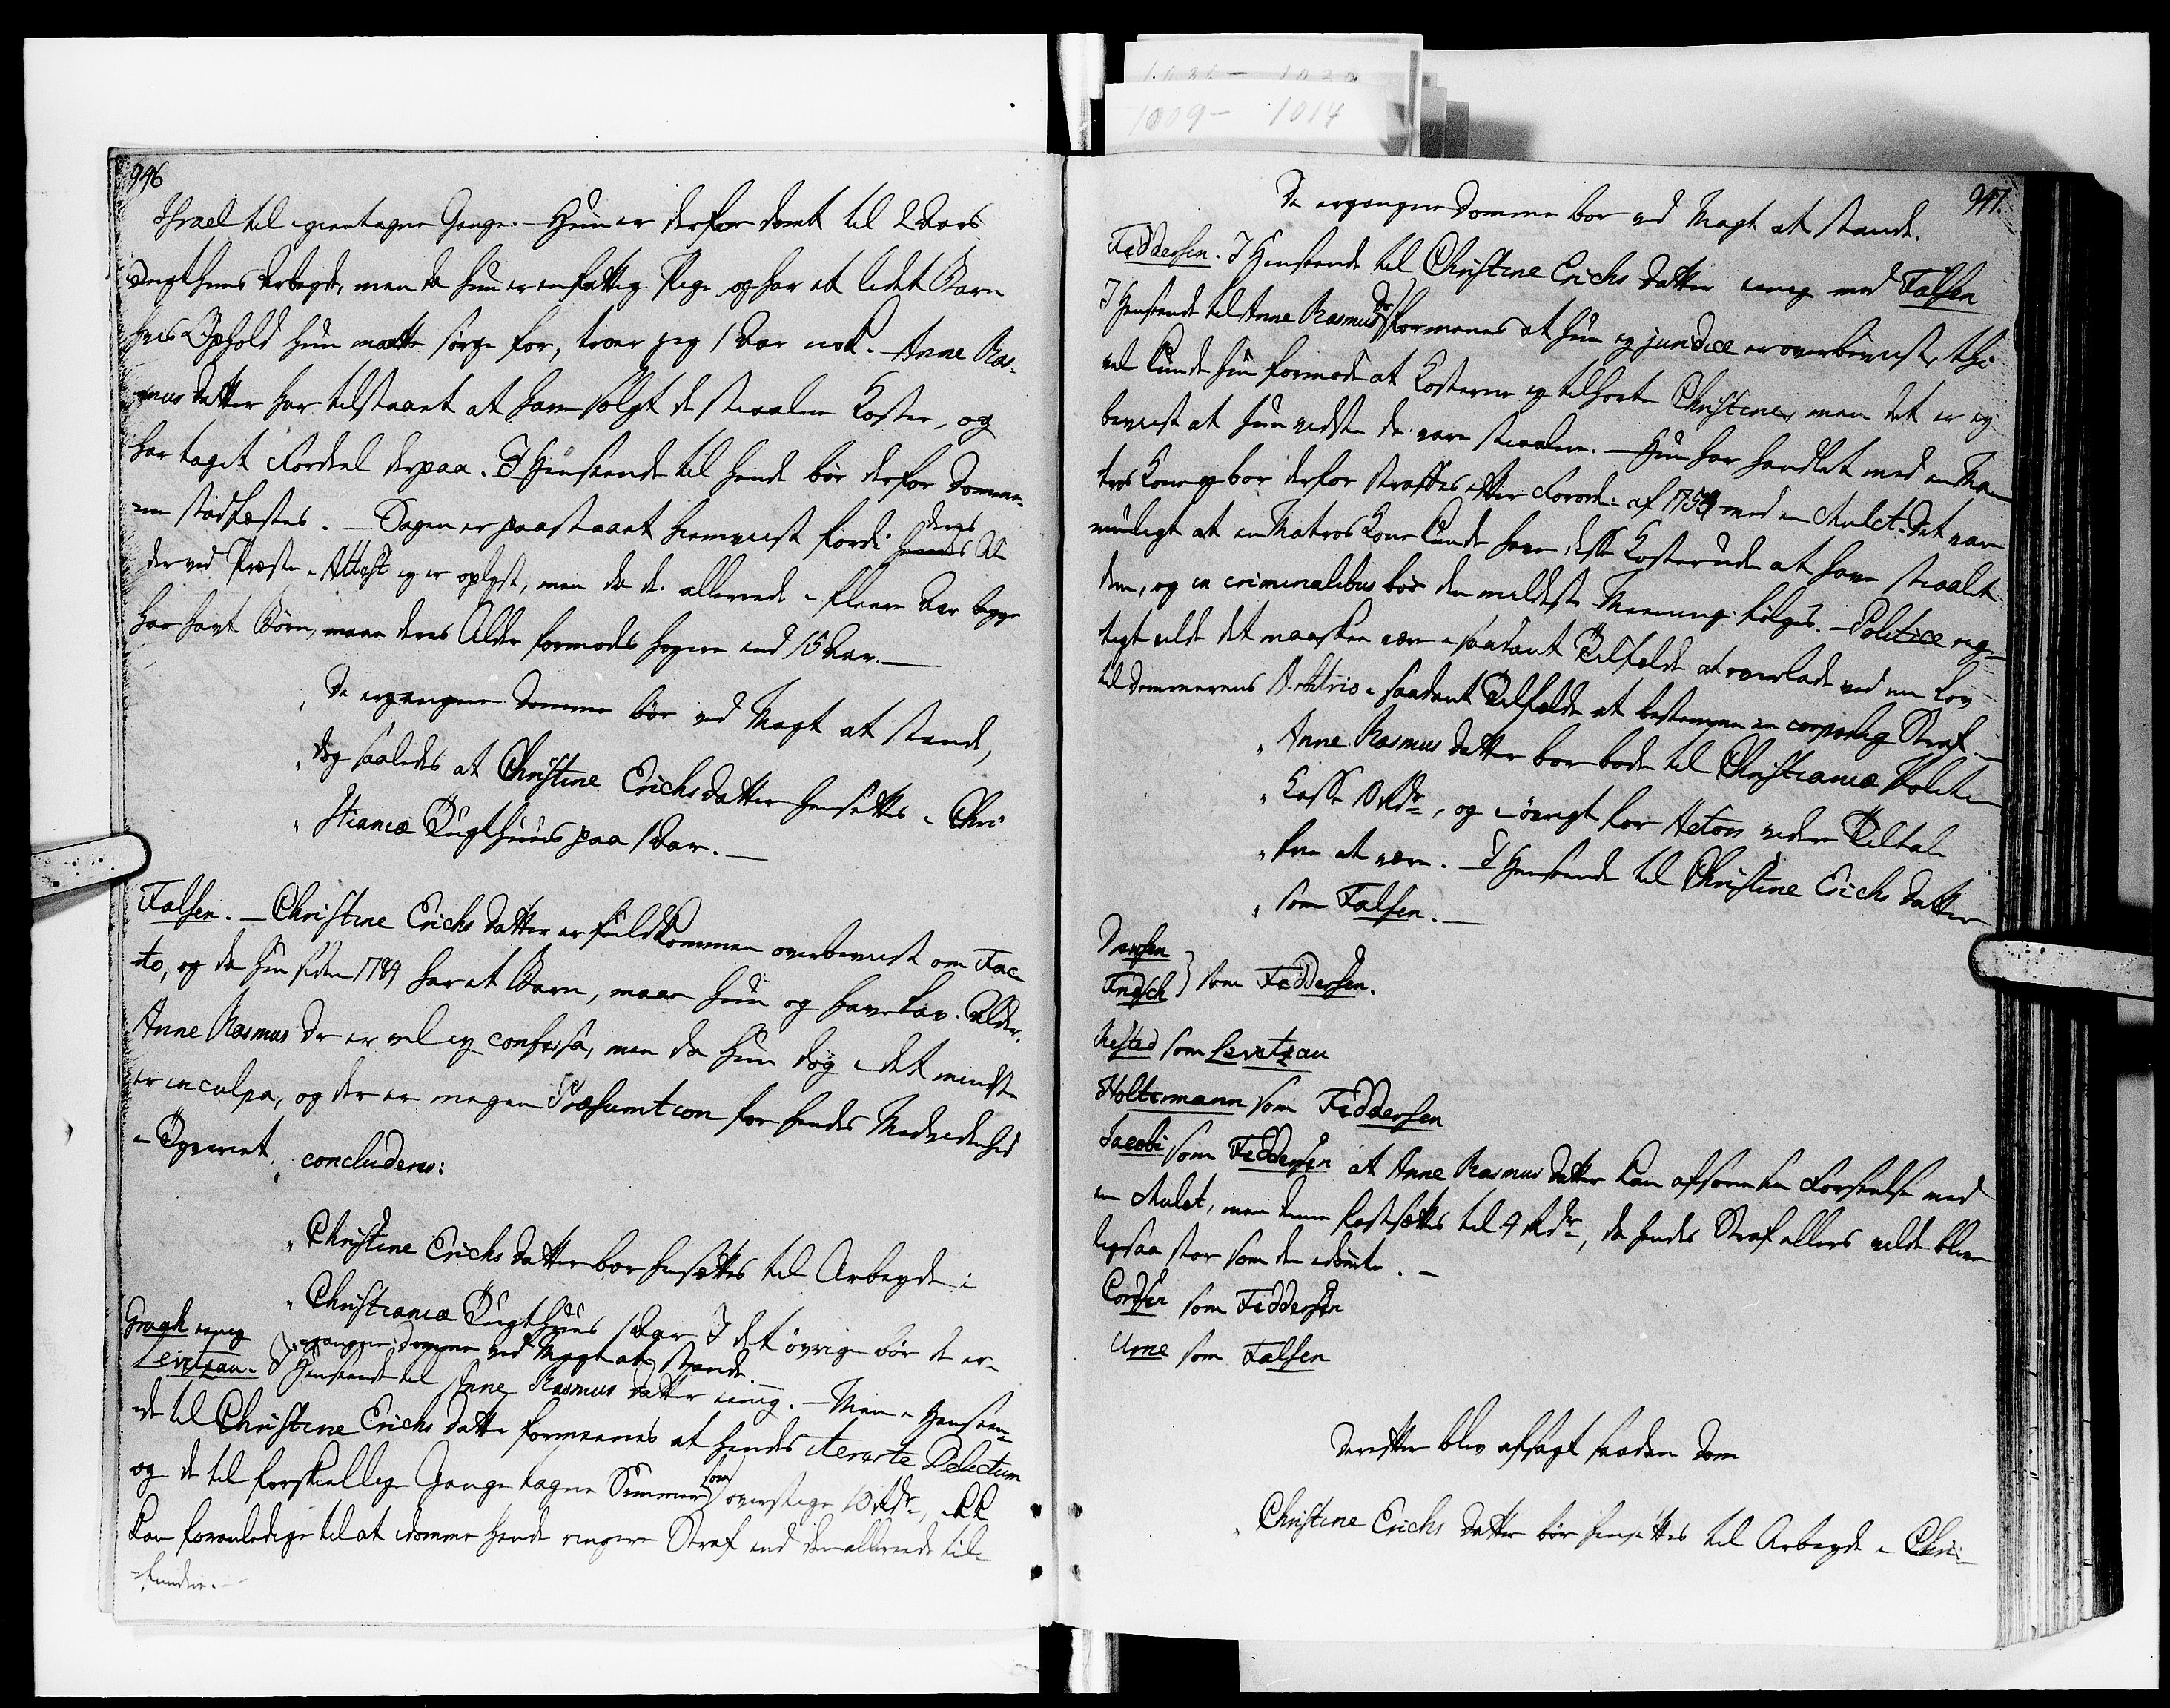 1009- 1014
946
Israel til igientagne Gange. - Hun er derfor dømt til 2 Aars
Tugthuus Arbeyde, men da hun er en fattig Pige og har et lidet Barn
hvis Ophold hun maatte sørge for, troer jeg 1 Aar nok. - Anne Ras-
mus datter har tilstaaet at have solgt de stiaalne Koster, og
har taget Fordeel derpaa. I Henseende til hende bør derfor Domme-
ne stadfæstes. - Sagen er paastaaet hiemviist fordi hendes deres Al-
der ved Præste-Attest ey er oplyst, men da de allerede i fleere Aar begge
har havt Børn, maae deres Alder formodes høyere end 15 Aar. -
De ergangne Domme bør ved Magt at stande,
" dog saaledes at Christine Erichsdatter hensættes i Chri-
" stianiæ Tugthuus paa 1 Aar. -
Falsen. - Christine Erichs datter er fuldkommen overbeviist om Fac-
to, og da hun siden 1784 har et Barn, maae hun og have Lav-Alder.
Anne Rasmus Dr er vel ey confessa, men da hun dog i det mindste
er in culpa, og der er megen Præsumtion for hendes Medvidenhed
i Tyveriet, concluderes:
" Christine Erichs datter bør hensættes til Arbeyde i
" Christianiæ Tugthuus 1 Aar. I det øvrige bør de er-
" gangne Domme ved Magt at stande.
Gragh eenig
Levetzau. I Henseende til Anne Rasmus datter eenig. - Men i Henseen-
de til Christine Erichs datter formeenes at hendes itererte Delictum
og de til forskiellige Gange tagne Summer som overstige 10 Rdr, ikke
kan foranledige til at idømme hende ringere Straf end den allerede til-
fundne. -
947.
De ergangne Domme bør ved Magt at stande.
Feddersen. I Henseende til Christine Erichs datter eenig med Falsen
I Henseende til Anne Rasmus Dr formenes at hun ey juridice er overbeviist, thi
vel kunde hun formode at Kosterne ey tilhørte Christine, men det er ey
beviist at hun vidste de vare stiaalne. - Hun har handlet med en Ma-
tros Kone og bør derfor straffes efter Forord: af 1759 med en Mulct. Det var
mueligt at en Matros Kone kunde have disse Koster uden at have stiaalet
dem, og in criminalibus bør den mildeste Meening følges. - Politice rig-
tigt vilde det maaskee være i saadant Tilfælde at overlade ved en Lov
til Dommerens Arbitrio i saadant Tilfælde at bestemme en corporlig Straf. -
" Anne Rasmus datter bør bøde til Christianiæ Politie
" Kasse 10 Rdr, og i øvrigt for Actors videre Tiltale
" frie at være. - I Henseende til Christine Erichs datter
" som Falsen. -
Fridsch } som Feddersen.
Mested som Levetzau
Holtermann som Feddersen
Jacobi som Feddersen at Anne Rasmus datter kan afsone sin Forseelse med
en Mulct, men denne fastsættes til 4 Rdr, da hendes Straf ellers vilde blive
ligesaa stor som den idømte. -
Cordsen som Feddersen
Urne som Falsen
Derefter blev afsagt saadan Dom
" Christine Erichs datter bør hensættes til Arbeyde i Chri-